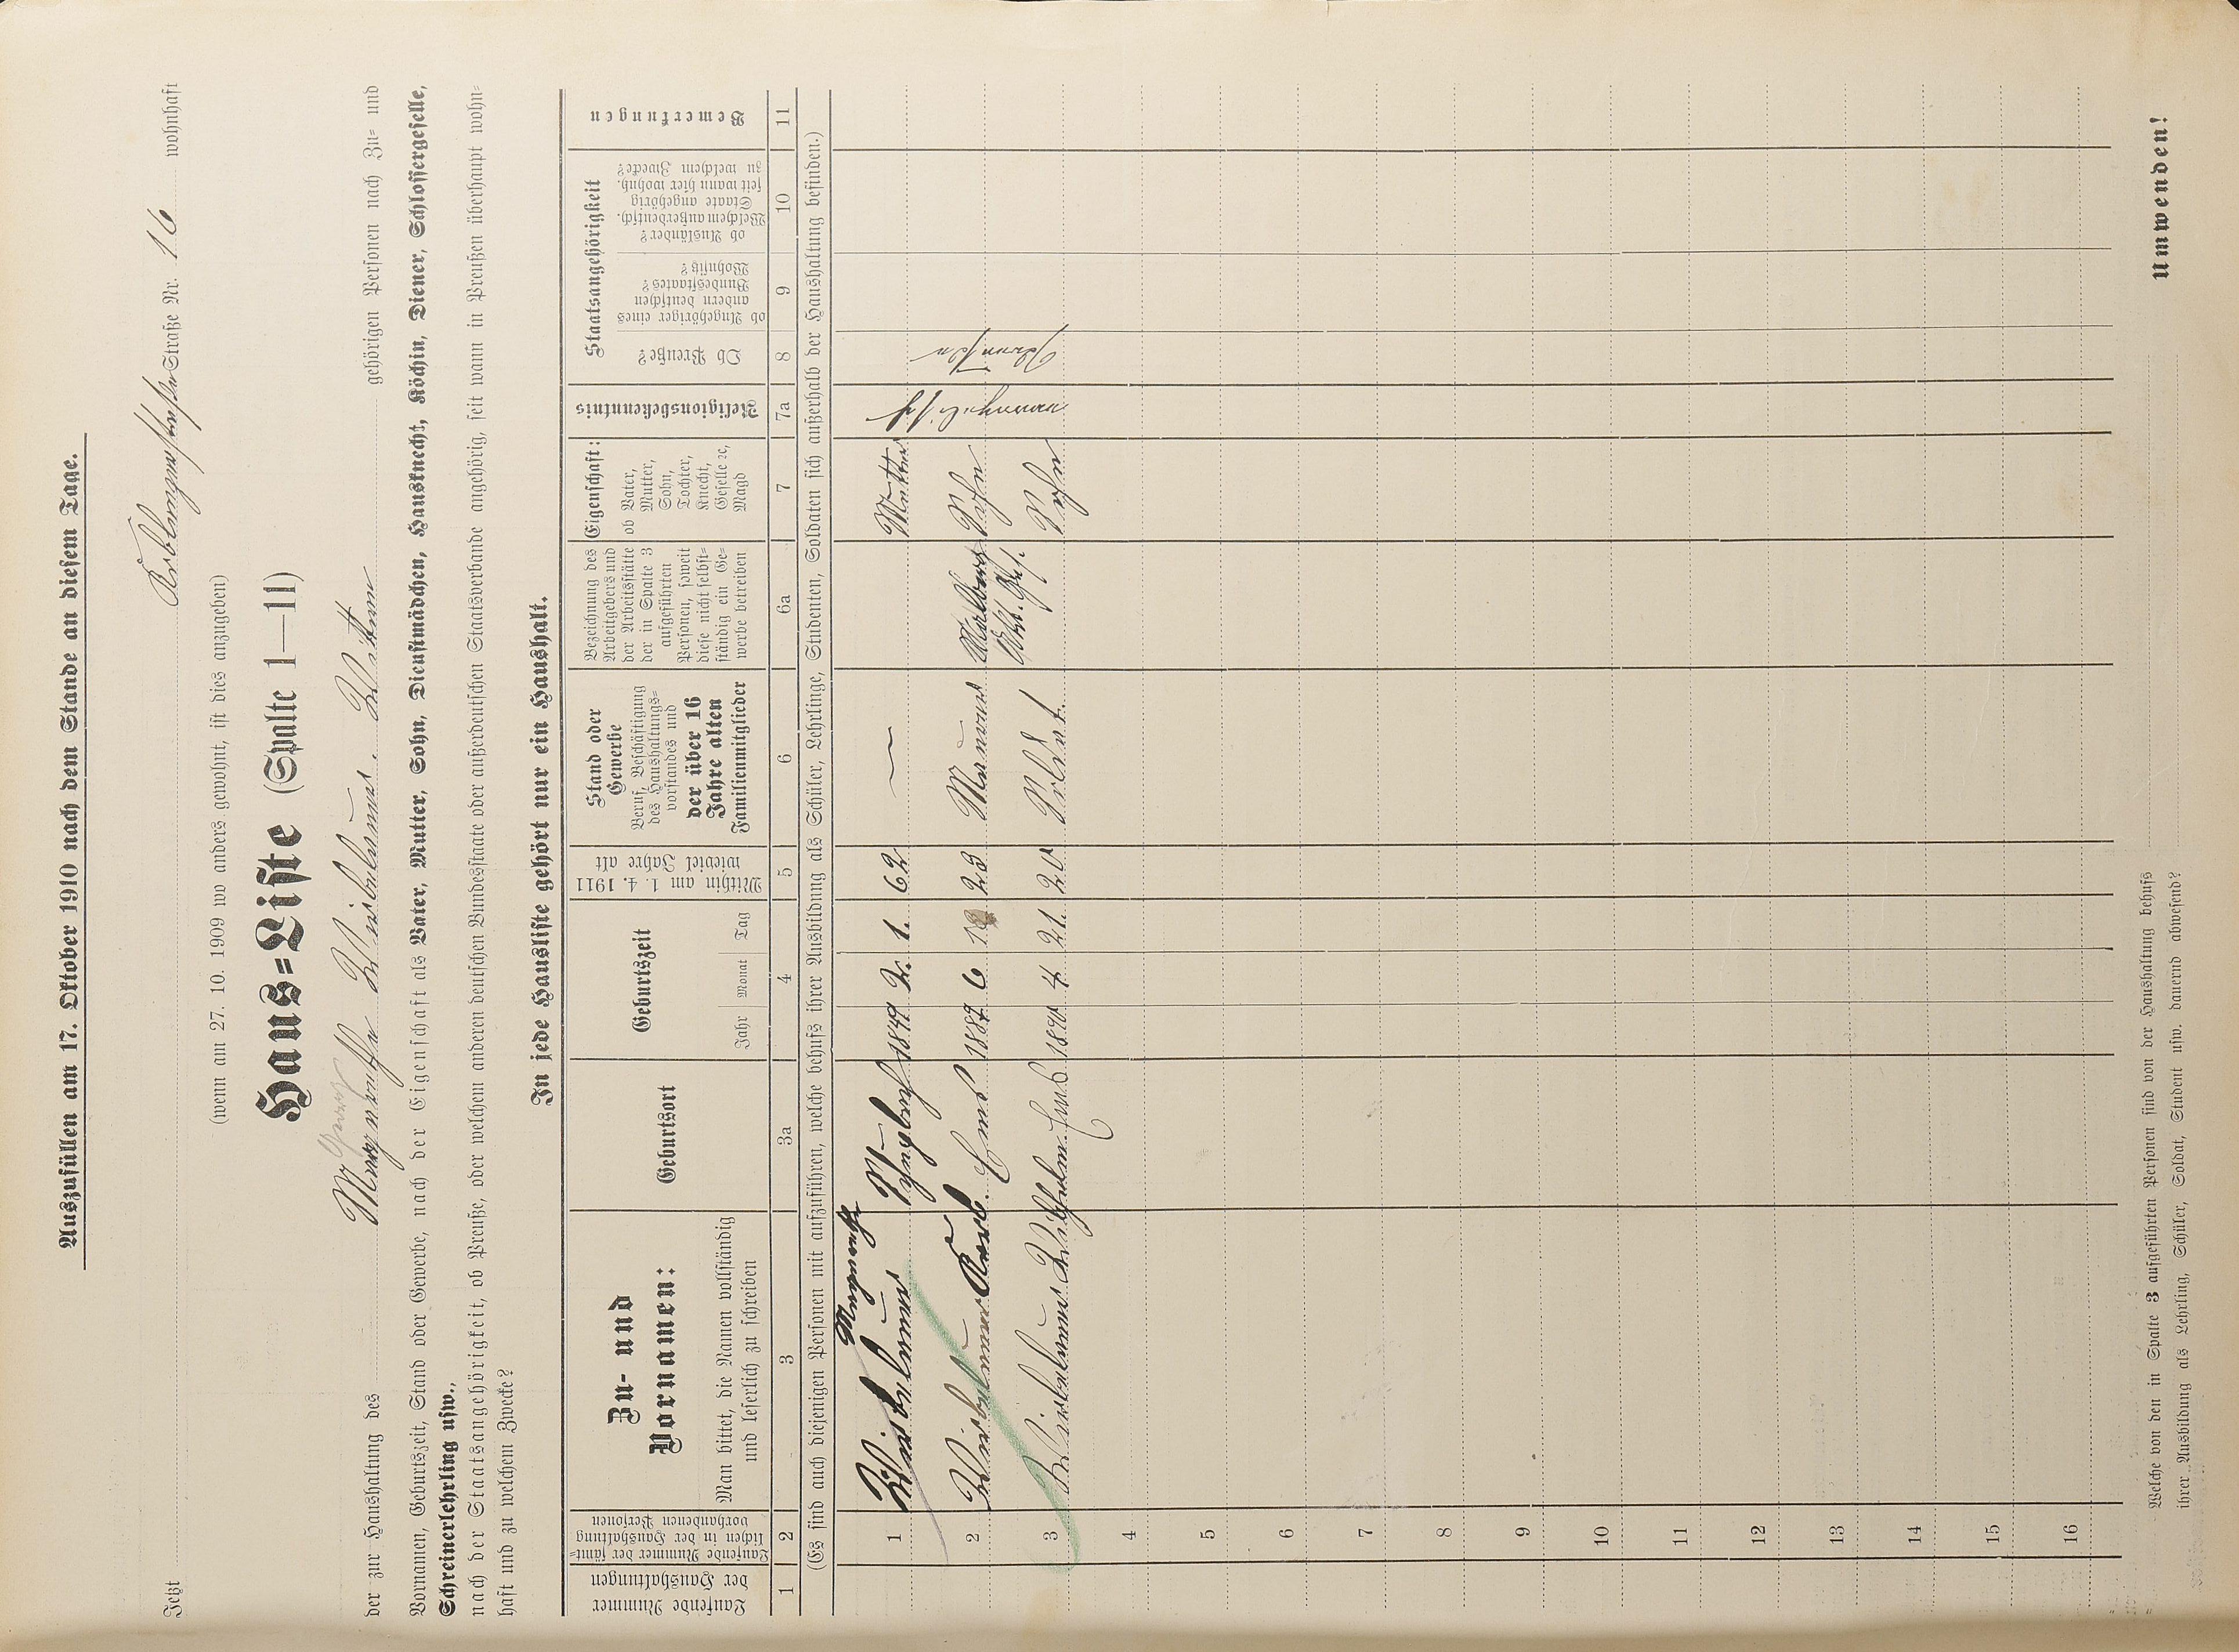 Auszufüllen am 17. Oktober 1910 nach dem Stande an diesem Tage.
Jetzt Straße Nr. 16 wohnhaft
(wenn am 27. 10. 1909 wo anders gewohnt, ist dies anzugeben)
Haus=Liste (Spalte 1—11)
der zur Haushaltung des gehörigen Personen nach Zu= und
Vornamen, Geburtszeit, Stand oder Gewerbe, nach der Eigenschaft als Vater, Mutter, Sohn, Dienstmädchen, Hausknecht, Köchin, Diener, Schlossergeselle,
Schreinerlehrling usw.,
nach der Staatsangehörigkeit, ob Preuße, oder welchem anderen deutschen Bundesstaate oder außerdeutschen Staatsverbande angehörig, seit wann in Preußen überhaupt wohn=
haft und zu welchem Zwecke?
In jede Hausliste gehört nur ein Haushalt.
Laufende Nummer
der Haushaltungen
Laufende Nummer der sämt=
lichen in der Haushaltung
vorhandenen Personen
Zu- und
Vornamen:
Man bittet, die Namen vollständig
und leserlich zu schreiben
Geburtsort
Geburtszeit
Jahr Monat Tag
Mithin am 1. 4. 1911
wieviel Jahre alt
Stand oder
Gewerbe
Beruf, Beschäftigung
des Haushaltungs=
vorstandes und
der über 16
Jahre alten
Familienmitglieder
Bezeichnung des
Arbeitgebers und
der Arbeitsstätte
der in Spalte 3
aufgeführten
Personen, soweit
diese nicht selbst=
ständig ein Ge=
werbe betreiben
Eigenschaft:
ob Vater,
Mutter,
Sohn,
Tochter,
Knecht,
Geselle ec,
Magd
Religionsbekenntnis
Staatsangehörigkeit
Ob Preuße?
ob Angehöriger eines
andern deutschen
Bundesstaates?
Wohnsitz?
ob Ausländer?
Welchem außerdeutsch.
Staate angehörig
seit wann hier wohnh.
zu welchem Zwecke?
Bemerkungen
1 2 3 3a 4 5 6 6a 7 7a 8 9 10 11
(Es sind auch diejenigen Personen mit aufzuführen, welche behufs ihrer Ausbildung als Schüler, Lehrlinge, Studenten, Soldaten sich außerhalb der Haushaltung befinden.)
1 1849 2. 1. 62 — Mutter
2 Karl. Ems 1887 6 23 Maurer Sohn
3 Wilhelm Ems 1890 4 21. 20 Soldat. Sohn
4
5
6
7
8
9
10
11
12
13
14
15
16
Welche von den in Spalte 3 aufgeführten Personen sind von der Haushaltung behufs
ihrer Ausbildung als Lehrling, Schüler, Soldat, Student usw. dauernd abwesend?
Umwenden!